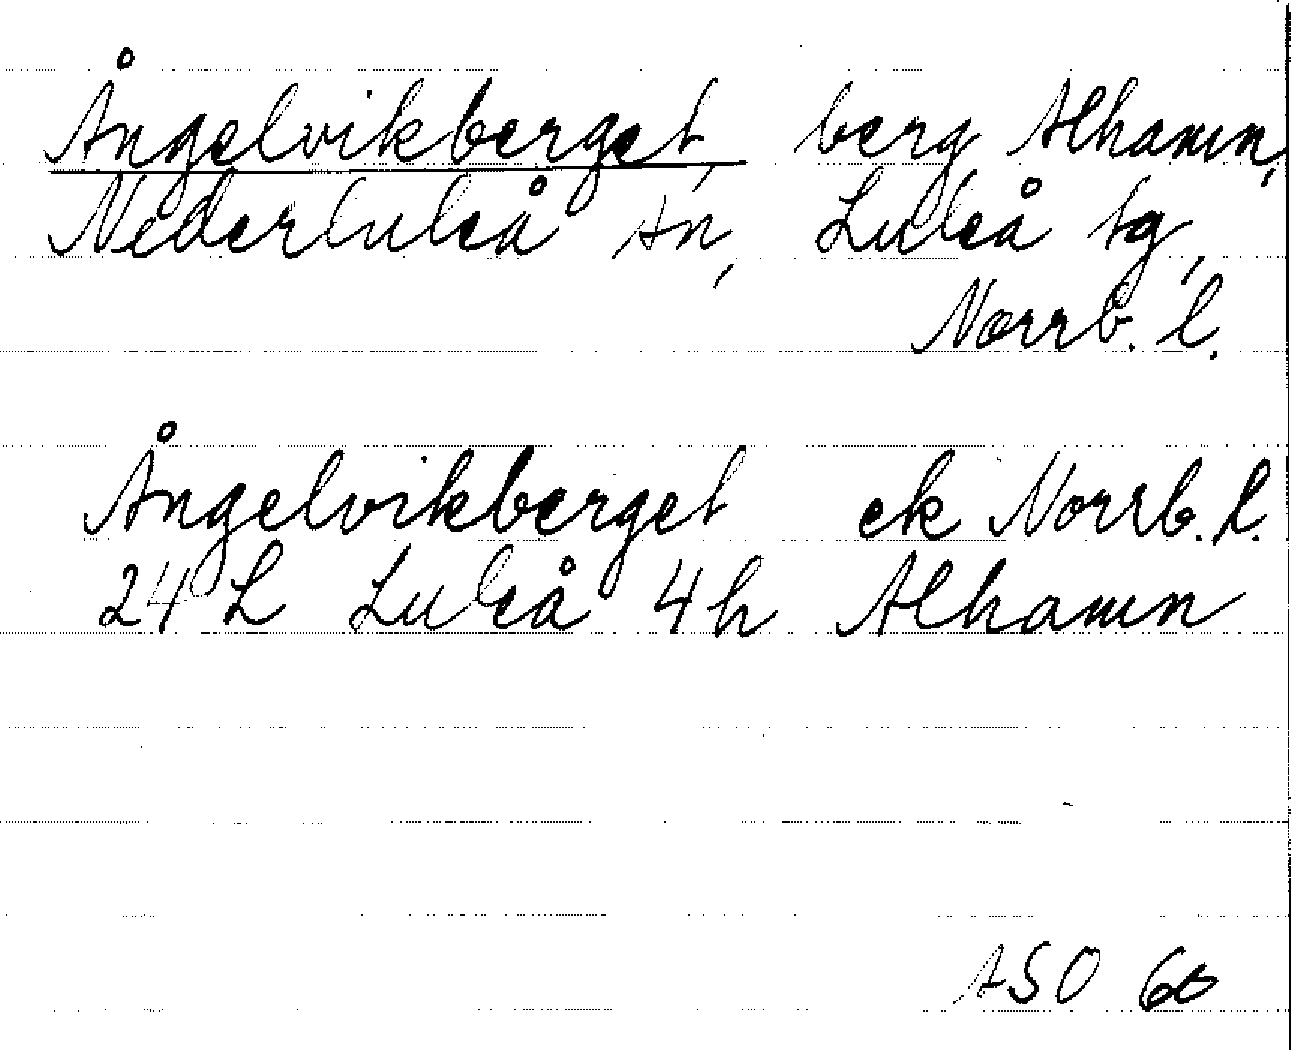 Ångelvikberget, berg Alhamn,
Nederluleå sn, Luleå tg,
Norrb. l.
Ångelvikberget ek Norrb. l.
24 L Luleå 4h Alhamn
ASO 60